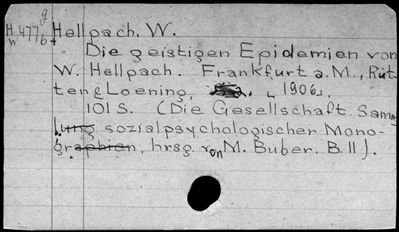 g
H 477 Hellpach, W.
w b
Die geistigen Epidemien von
W. Hellpach. Frankfurt a.M., Rüt-
ten & Loening, 1906.
101 S. (Die Gesellschaft. Samm
lung sozialpsychologischer Mono-
graphien, hrsg. von M. Buber. B. 11).